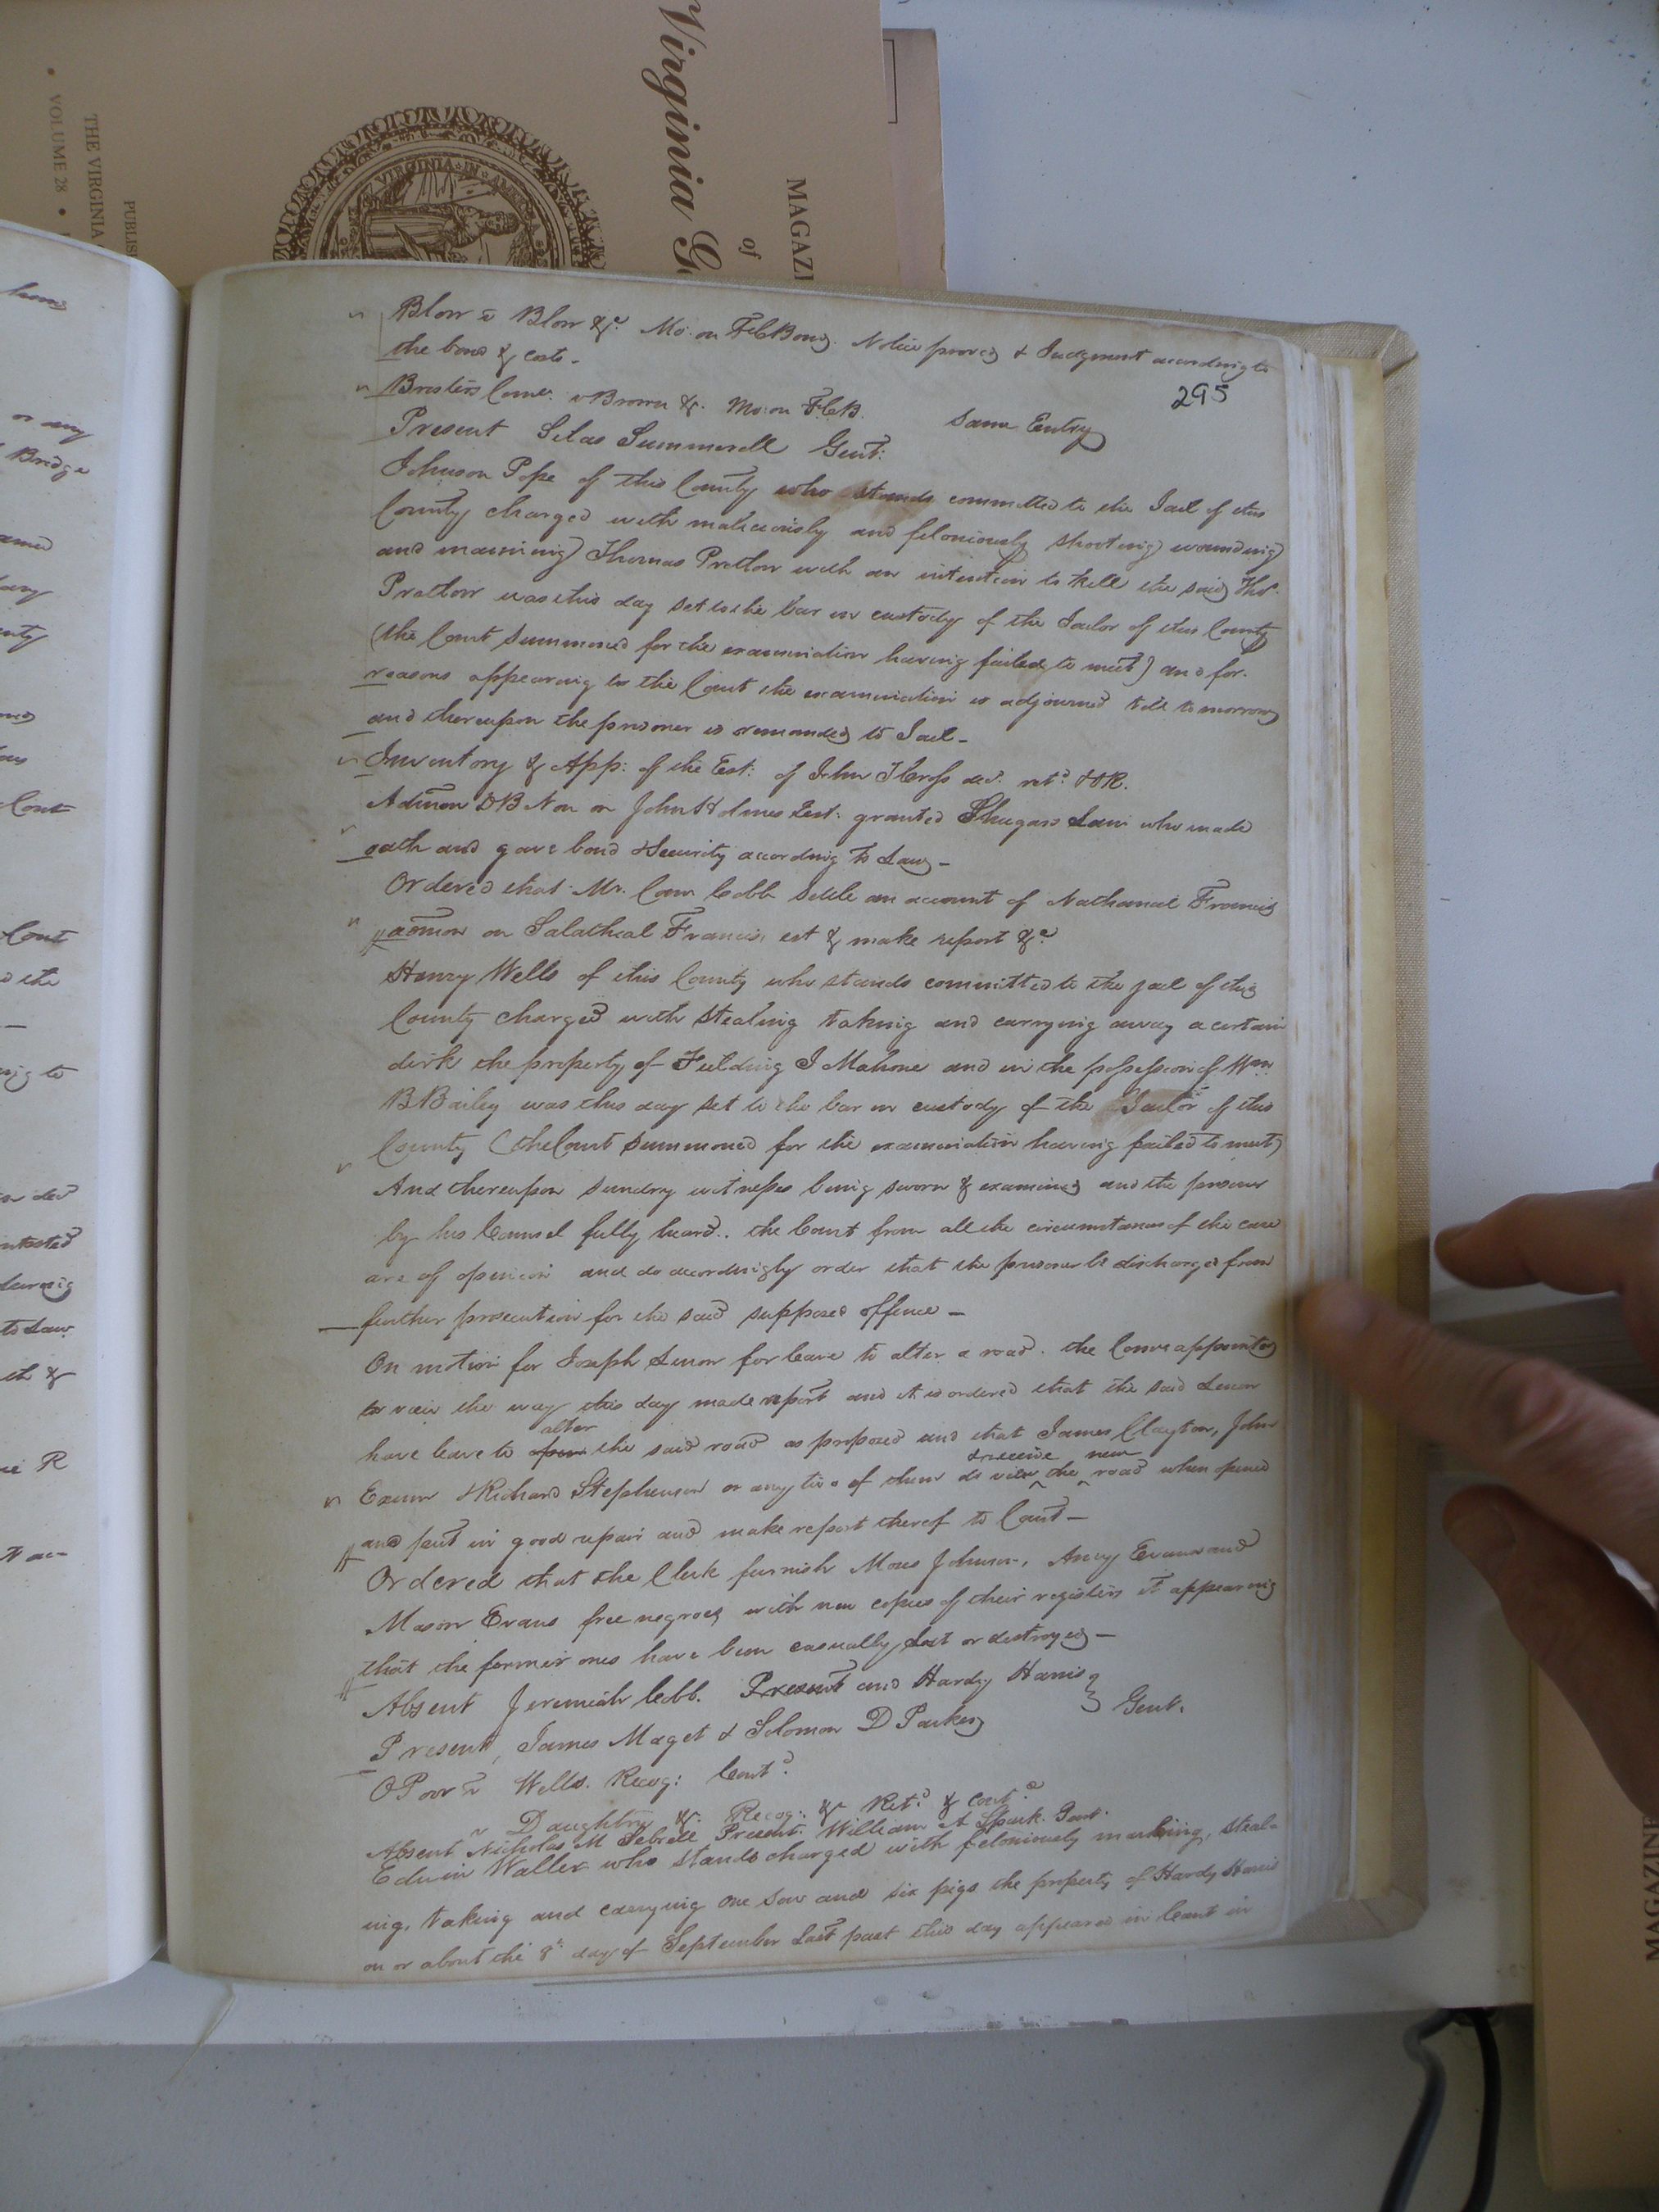 Virginia
MAGAZI
of
THE VIRGINIA
VOLUME 28
PUBLIS
VIRGINIA IN
Blow v Blow &c. Mo: on F.C Bond. Notice proved & Judgment according to
the bond & costs -
295
v Brown &. Mo: on F.C.B. Same Entry
Present Silas Summerell Gent:
Johnson Pope of this County who stands committed to the Jail of this
County charged with maliciously and feloniously shooting wounding
and maiming Thomas Pretlow with an intention to kill the said Thos.
Pretlow was this day set to the bar in custody of the Jailor of this County
(the Court summoned for the examination having failed to meet) and for
reasons appearing to the Court the examination is adjourned till tomorrow
and thereupon the prisoner is remanded to Jail -
Inventory & App: of the Est: of John decd. retd. & OR.
Admon D B Non on John Holmes Est: granted who made
oath and gave bond & Security according to Law -
Ordered that Mr. Cobb settle an account of Nathaniel Francis
admon on Salathial Francis est & make report &c
Henry Wells of this County who stands committed to the jail of this
County charged with stealing taking and carrying away a certain
dirk the property of Feilding J Mahone and in the possession of Wm
B Bailey was this day set to the bar in custody of the Jailor of this
County (the Court summoned for the examination having failed to meet)
And thereupon sundry witnesses being sworn & examined and the prisoner
by his Counsel fully heard.. the Court from all the circumstances of the case
are of opinion and do accordingly order that the prisoner be discharged from
further prosecution for the said supposed offence -
On motion for Joseph Lenow for leave to alter a road. the Comrs appointed
to view the way this day made report and it is ordered that the said Lenow
have leave to alter the said road as proposed and that James Clayton, John
Exum & Richard Stephenson or any two of them do view & receive the new road when opened
and put in good repair and make report thereof to Court -
Ordered that the Clerk furnish Moses Johnson, Amy Evans and
Mason Evans free negroes with new copies of their registers it appearing
that the former ones have been casually lost or destroyed -
Absent Jeremiah Cobb. Present and Hardy Harris
Present, James Maget & Solomon D Parker } Gent.
O Poor v Wells. Recog: Contd.
" Daughtry &. Recog: &c Retd. & contd.
Absent Nicholas M Sebrell Present. William A Spark Gent.
Edwin Waller who stands charged with feloniously marking, steal-
ing, taking and carrying one sow and six pigs the property of Hardy Harris
on or about the 8th day of September last past this day appeared in Court in
or any
Bridge
Court
Court
to Law
MAGAZINE